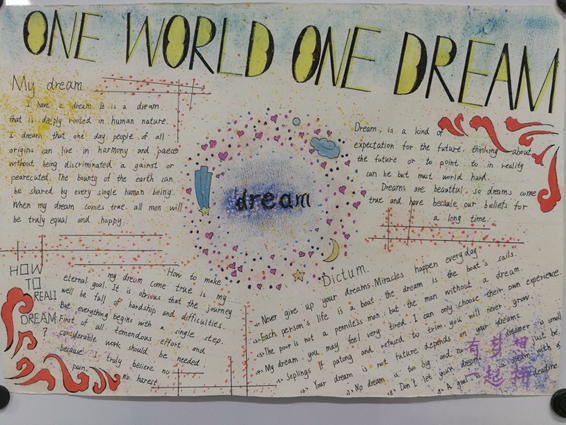 ONE WORLD ONE DREAM
My dream
I have a dream. It is a dream
that is deeply rooted in human nature.
I dream that one day people of all
origins can live in harmony and paece
without being discriminated a gainst or
pearecuted. The bounty of the earth can
be shared by every single human being.
When my dream comes true. all men will
be truly equal and happy.
dream
Dream, is a kind of
expectation for the future. thinking about
the future or to point to in reality
can be but must world hard.
Dreams are beautiful. so dreams come
true and have because our beliefs for
a long time.
HOW
TO
REALI
DREAM
?
How to make
my dream come true is my
eternal goal. It is obvious that the journey
well be fall of hardship and difficulties.
But everything begins with a single step.
First of all. tremendous effort and
considerable work should be needed.
because I truly believe no
pain, no harest.
Dictum.
Never give up your dreams. Miracles happen every day.
Each person's life is a boat. the dream is the boat's sails.
The poor is not a penniless man. but the man without a dream.
My dream you may feel very tired. I can only choose their own experience.
Seplings if patong and refused to trim. you will never grow.
Your dream is not future depends in your dreams
No dream is too big and no dreamer is small
Don't let your dreams just be
A goal is a dream with a deadline
有梦想
一起拼